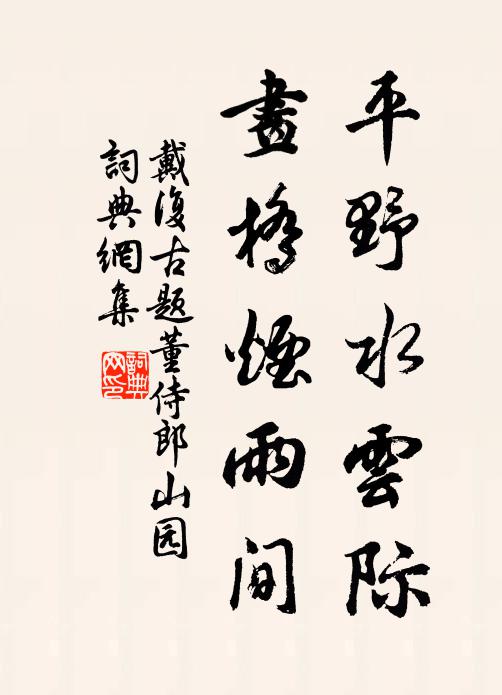 平野水雲际
畫橋煙雨间
戴復古题董侍郎山园
詞典網集
詞典网印